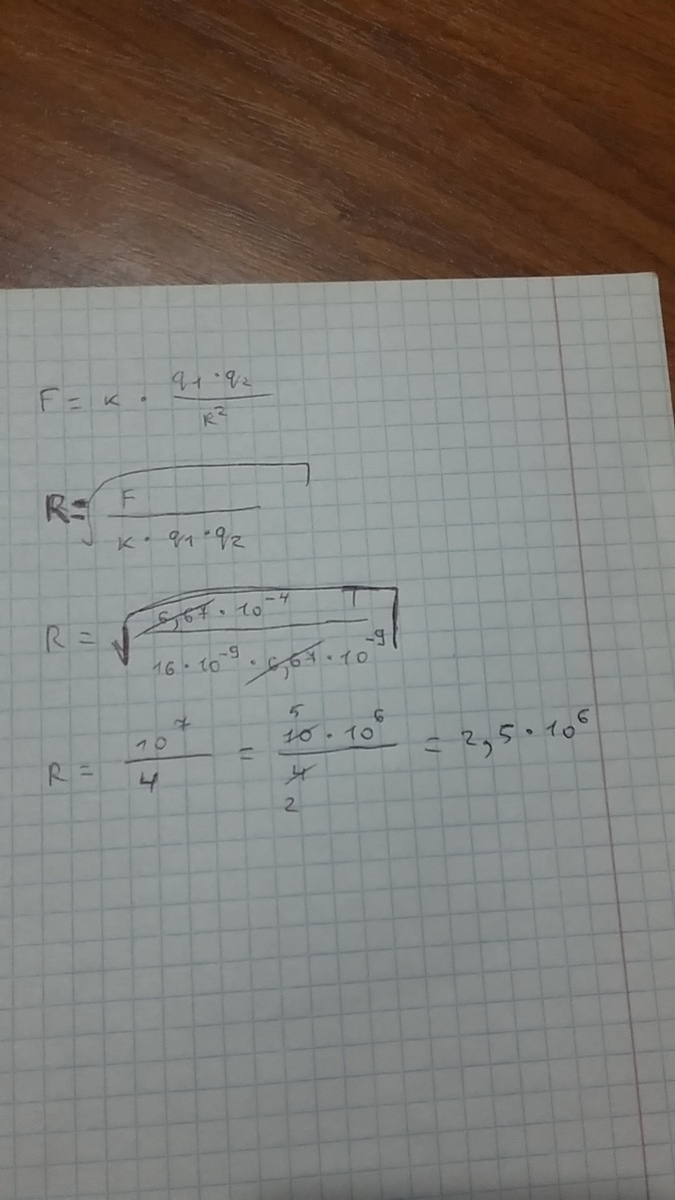 F = к · q₁ · q₂ / к²
R = √ F / к · q₁ · q₂
R = √ 6,67 · 10⁻⁴ / 16 · 10⁻⁹ · 6,67 · 10⁻⁹
R = 10⁷ / 4 = 5 10 · 10⁶ / 4 2 = 2,5 · 10⁶